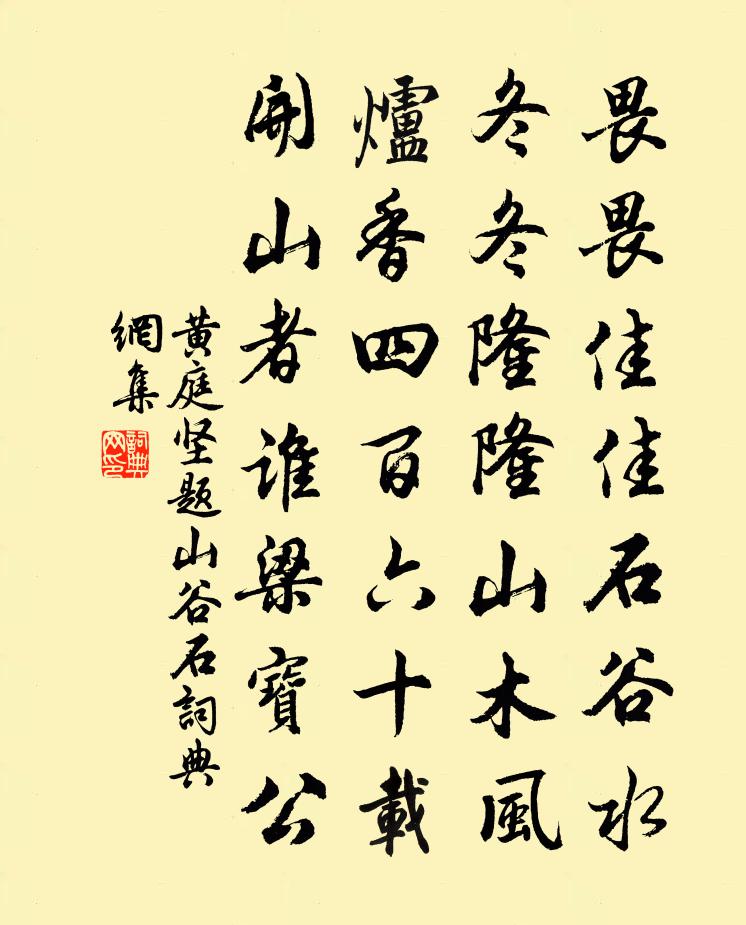 畏畏佳佳石谷水
冬冬隆隆山木風
爐香四百六十載
開山者誰梁寶公
黄庭坚题山谷石詞典
網集
詞典網印